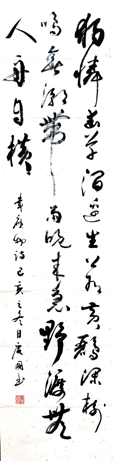 獨憐幽草澗邊生上有黄鸝深樹
鳴春潮帶雨晚来急野渡無
人舟自横
韋應物詩己亥之冬日